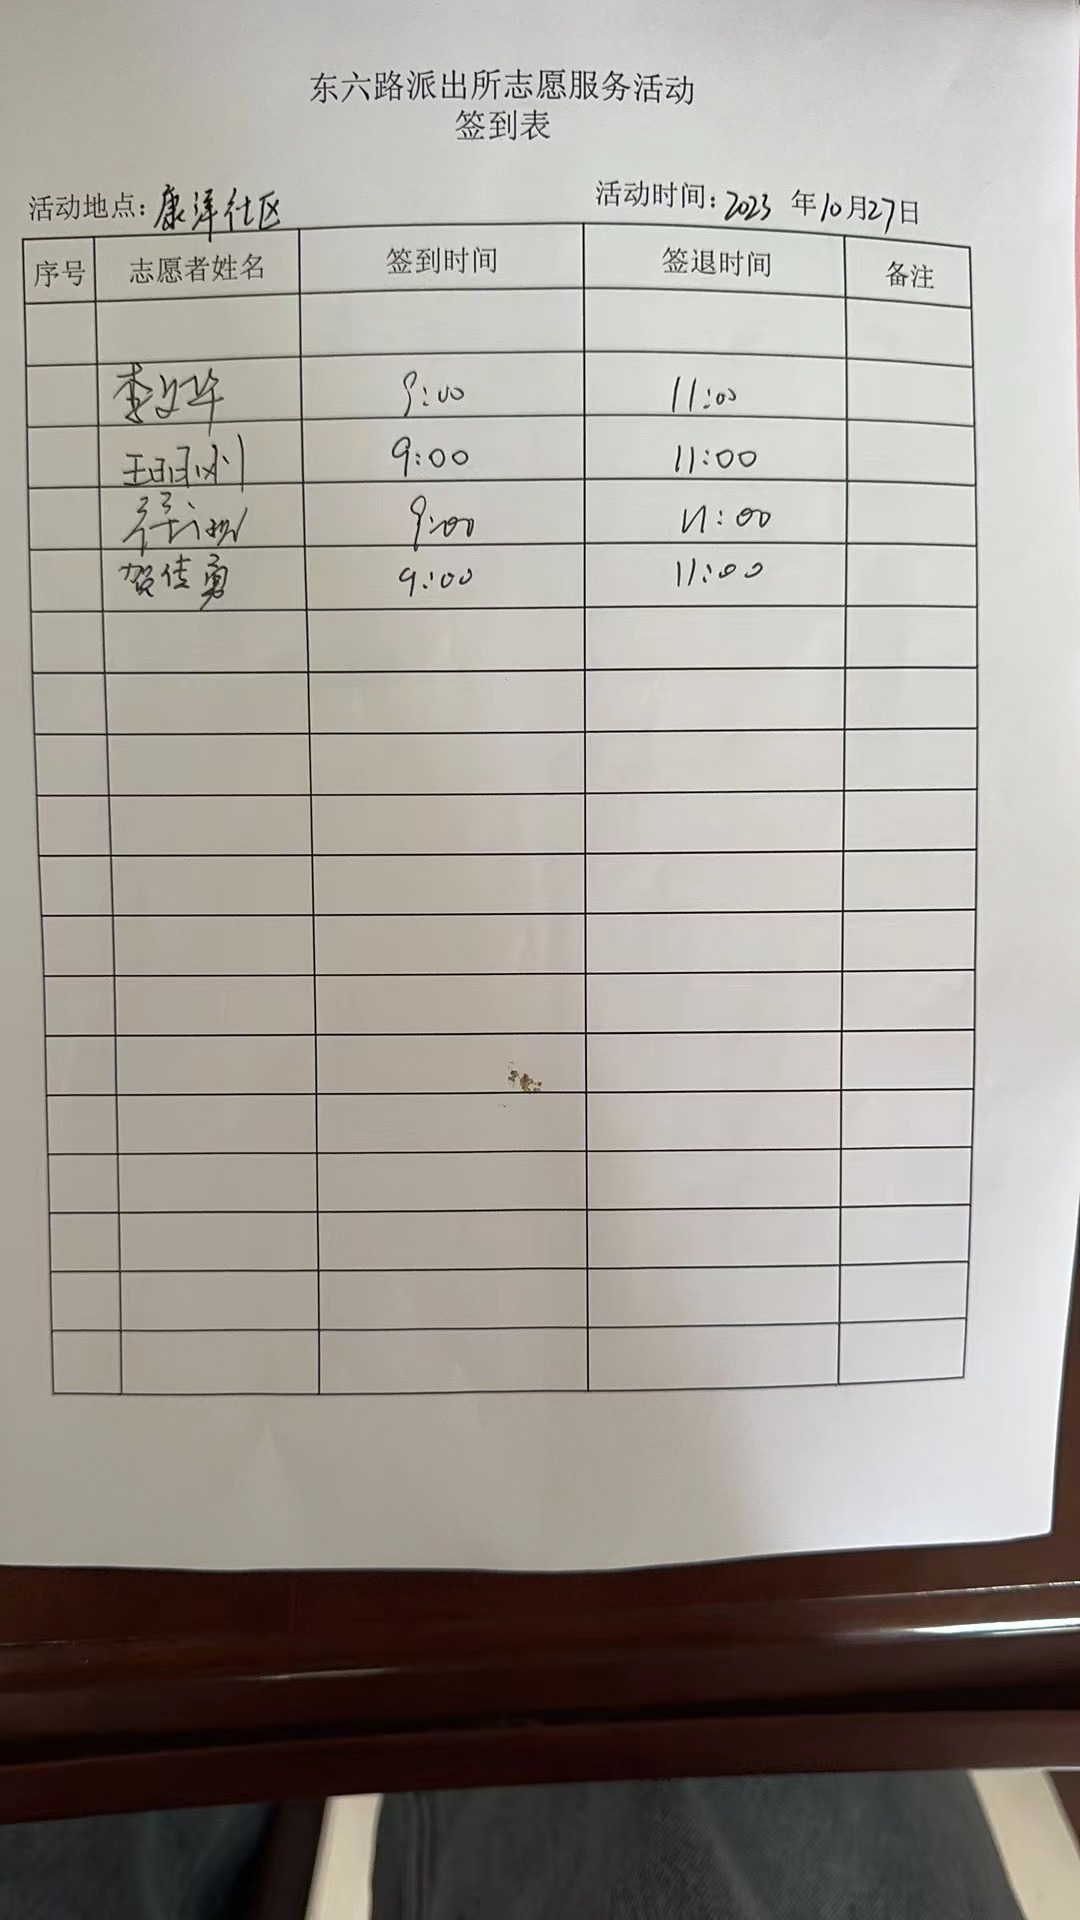 东六路派出所志愿服务活动
签到表
活动地点：康洋社区 活动时间：2023 年10月27日
序号 志愿者姓名 签到时间 签退时间 备注
李文华 9:00 11:00
9:00 11:00
9:00 11:00
贺佳勇 9:00 11:00